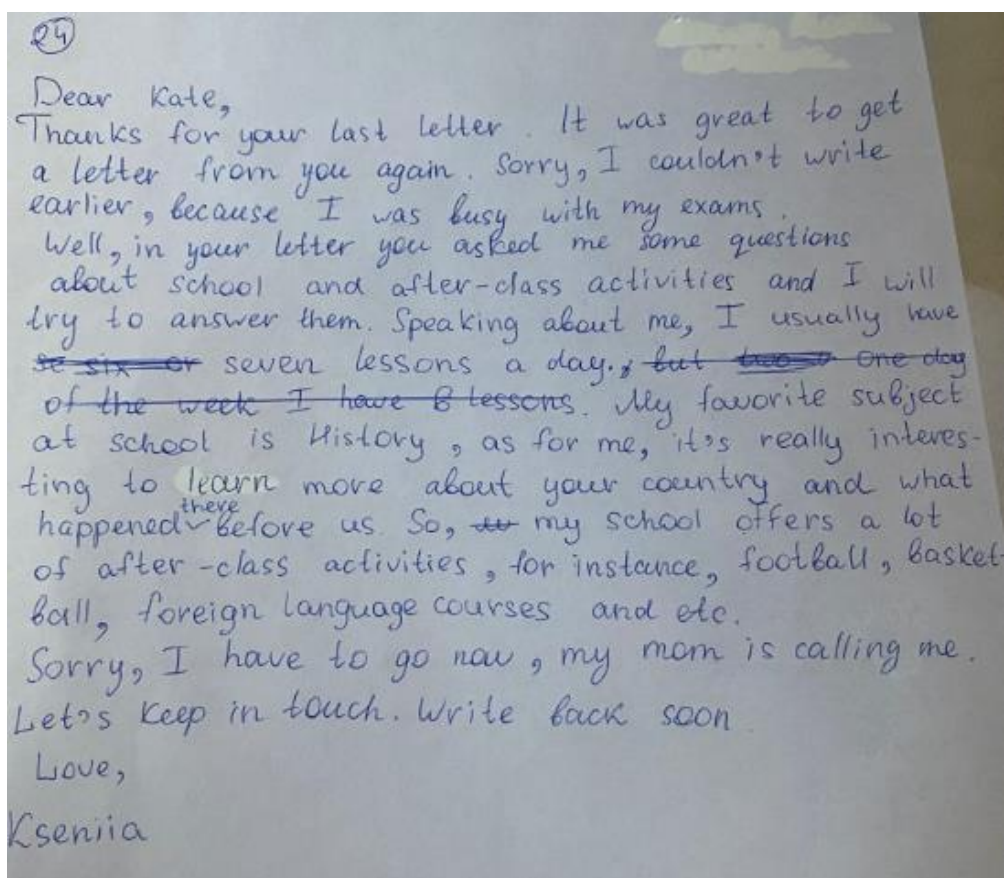 24
Dear Kate,
Thanks for your last letter. It was great to get
a letter from you again. Sorry, I couldn't write
earlier, because I was busy with my exams.
Well, in your letter you asked me some questions
about school and after-class activities and I will
try to answer them. Speaking about me, I usually have
se six or seven lessons a day., but two one day
of the week I have 6 lessons. My favorite subject
at school is History, as for me, it's really interes-
ting to learn more about your country and what
happened there before us. So, my school offers a lot
of after-class activities, for instance, football, basket-
ball, foreign language courses and etc.
Sorry, I have to go now, my mom is calling me.
Let's keep in touch. Write back soon
Love,
Kseniia